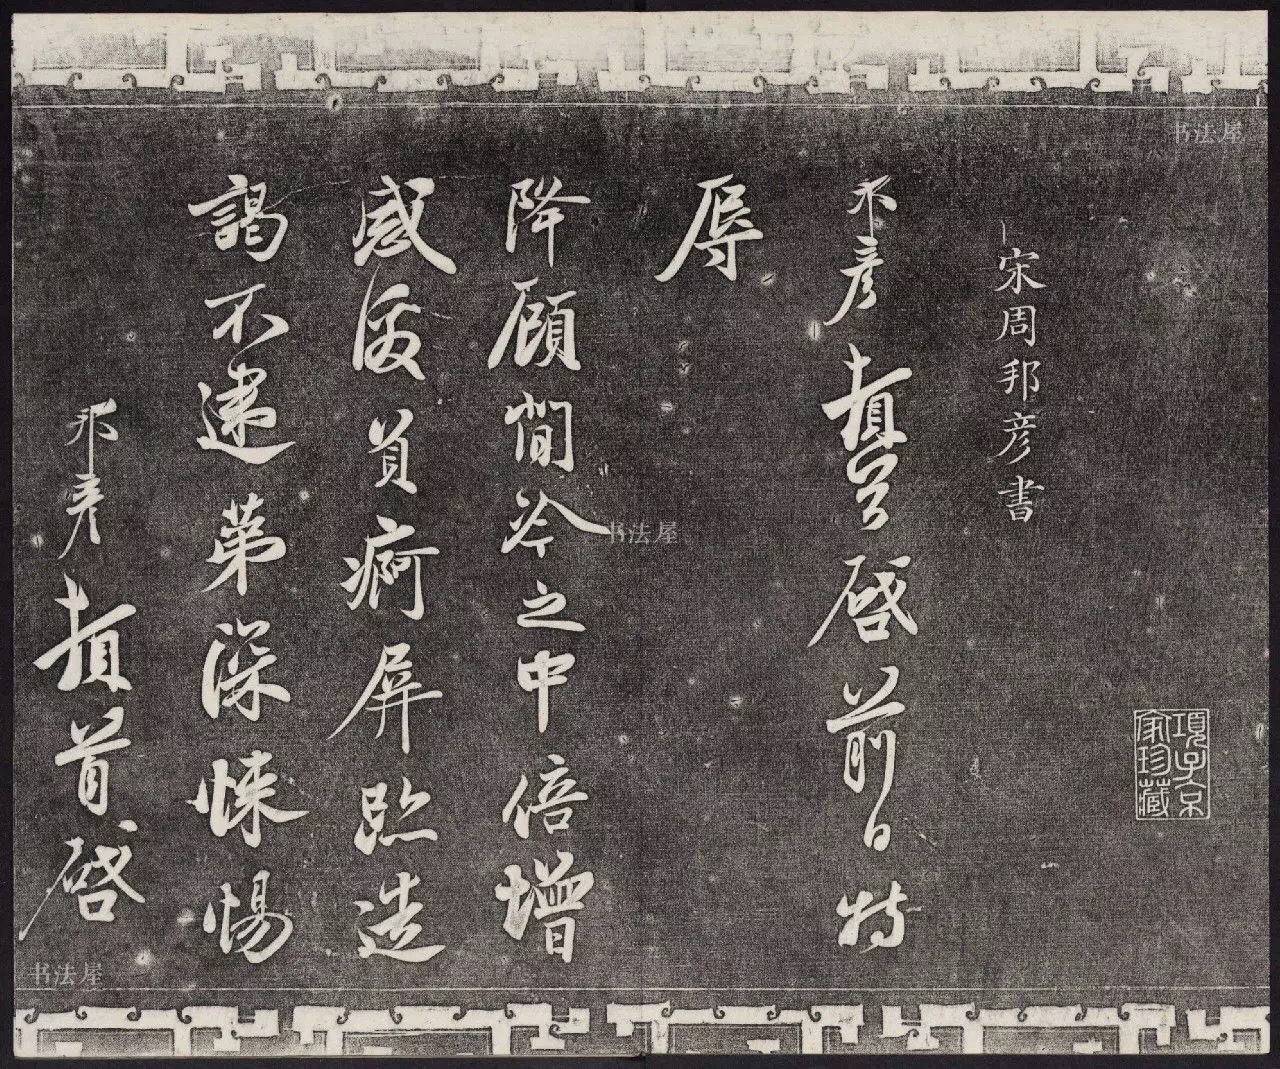 宋周邦彦書
邦彦頓首啓前日特
辱
降顧閒冷之中倍增
感
負痾屏跡造
謁不逮第深悚惕
邦彦頓首啓
項子京家珍藏
书法屋
书法屋
书法屋